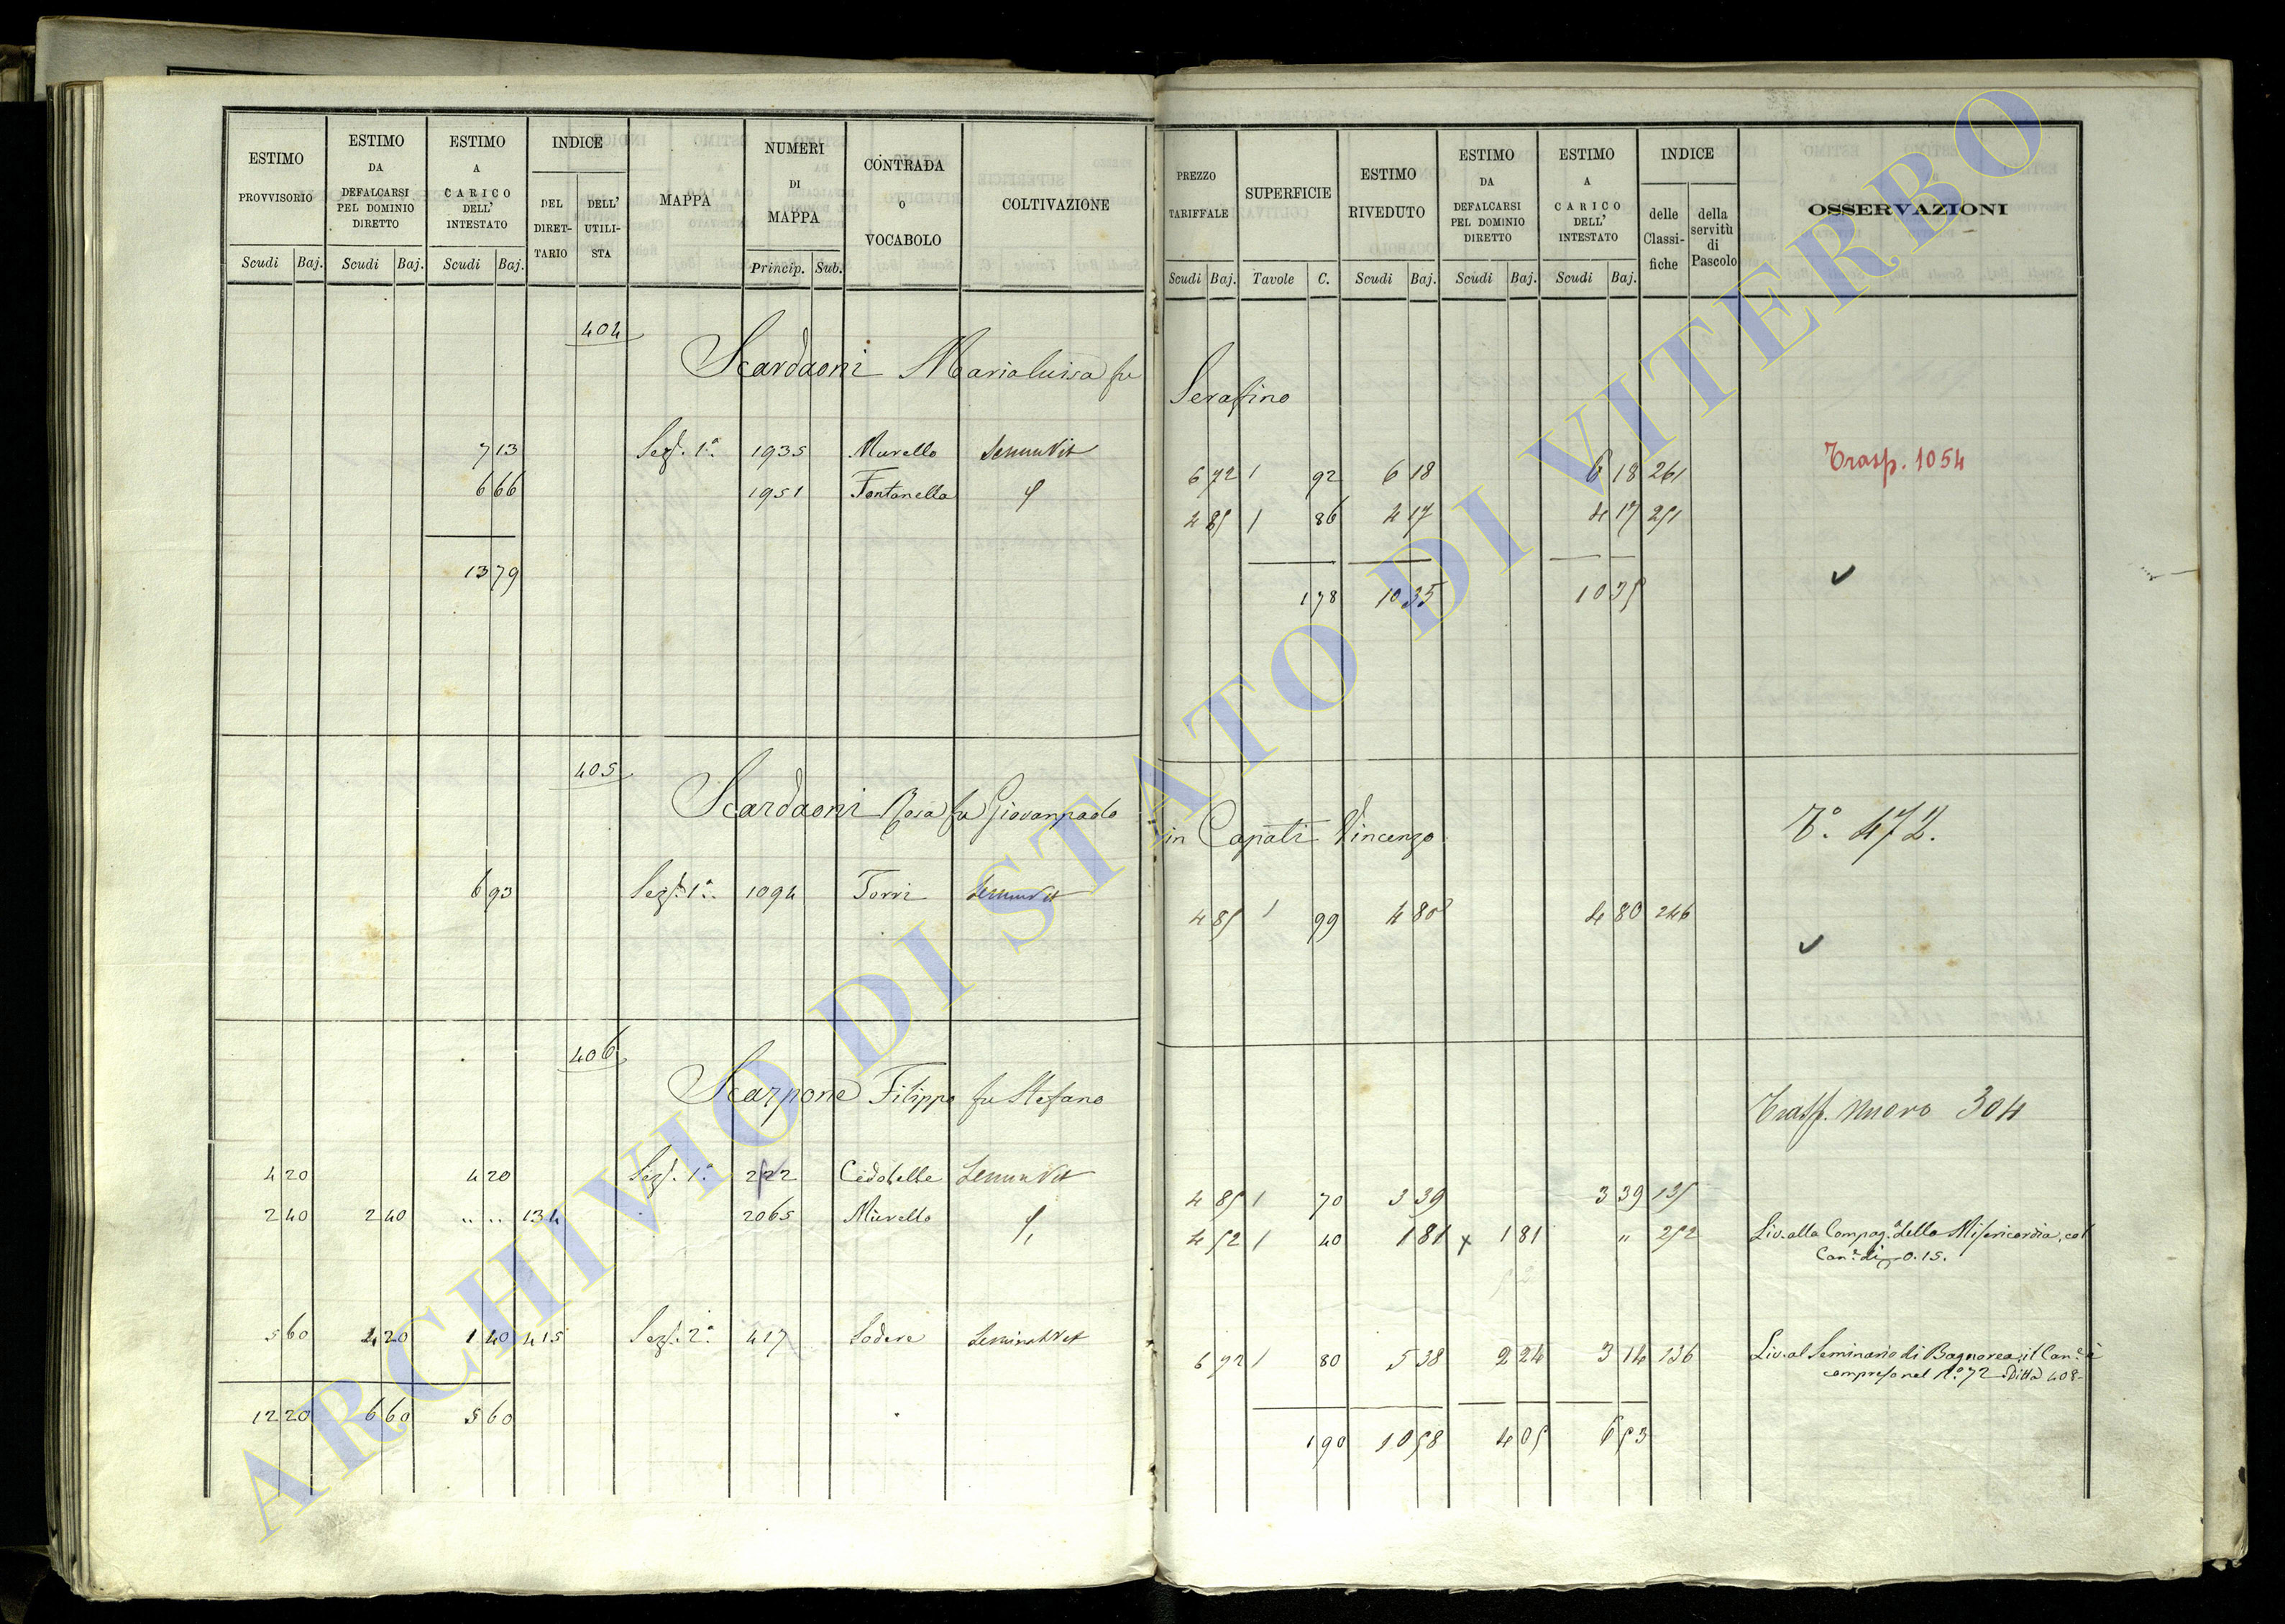 ESTIMO PROVVISORIO
ESTIMO DA DEFALCARSI PEL DOMINIO DIRETTO
ESTIMO A CARICO DELL' INTESTATO
INDICE
DEL DIRET-TARIO
DELL' UTILI-STA
MAPPA
NUMERI DI MAPPA
CONTRADA O VOCABOLO
COLTIVAZIONE
Scudi Baj. Scudi Baj. Scudi Baj. Princip. Sub.
PREZZO TARIFFALE
SUPERFICIE
ESTIMO RIVEDUTO
ESTIMO DA DEFALCARSI PEL DOMINIO DIRETTO
ESTIMO A CARICO DELL' INTESTATO
INDICE
delle Classi-fiche
della servitù di Pascolo
OSSERVAZIONI
Scudi Baj. Tavole C. Scudi Baj. Scudi Baj. Scudi Baj.
404
Scardaoni Marialuisa fu Serafino
7 13 Sez. 1a. 1935 Murello SemunVit 6 72 1 92 6 18 6 18 261 Trasp. 1054
6 66 1951 Fontanella 4 85 1 86 4 17 4 17 251
13 79 1 78 10 35 10 35
405
Scardaoni Rosa fu Giovanpaolo in Capati Vincenzo To. 472.
6 93 Sez. 1a. 1094 Torri SemunVit 4 85 1 99 4 80 4 80 246
406
Scarpone Filippo fu Stefano Trasp. nuovo 304
4 20 4 20 Sez. 1a. 222 Cedobelle SemunVit 4 85 1 70 3 39 3 39 135
2 40 2 40 " " 134 2065 Murello 4 52 1 40 1 81 x 1 81 " 252 Liv. alla Compag.a della Misericordia, col
Can.e di 0.15.
5 60 4 20 1 40 415 Sez. 2a. 417 Lodere SeminatVit 6 72 1 80 5 38 2 24 3 14 136 Liv. al Seminario di Bagnorea, il Can.e è
compreso nel No. 72 Ditta 408
12 20 6 60 5 60 1 90 10 58 4 05 6 53
ARCHIVIO DI STATO DI VITERBO